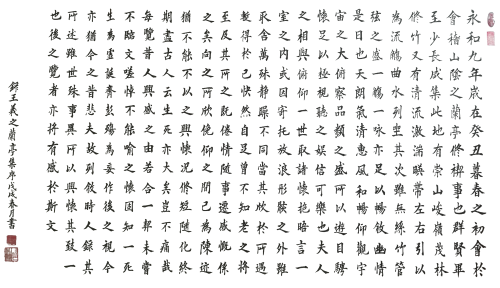 永和九年歲在癸丑暮春之初會於
會稽山陰之蘭亭脩禊事也群賢畢
至少長咸集此地有崇山峻嶺茂林
脩竹又有清流激湍映帶左右引以
為流觴曲水列坐其次雖無絲竹管
弦之盛一觴一詠亦足以暢敘幽情
是日也天朗氣清惠風和暢仰觀宇
宙之大俯察品類之盛所以遊目騁
懷足以極視聽之娛信可樂也夫人
之相與俯仰一世取諸懷抱晤言一
室之內或因寄托放浪形骸之外雖
取舍萬殊靜躁不同當其欣於所遇
暫得於己快然自足曾不知老之將
至及其所之既倦情隨事遷感慨係
之矣向之所欣俛仰之間已為陳迹
猶不能不以之興懷況脩短隨化終
期盡古人云生死亦大矣豈不痛哉
每覽昔人興感之由若合一契未嘗
不臨文嗟悼不能喻之懷固知一死
生為虛誕齊彭殤為妄作後之視今
亦猶今之昔悲夫故列敘時人錄其
所述雖世殊事異所以興懷其致一
也後之覽者亦將有感於斯文
錄王羲之蘭亭集序戊戌春月書